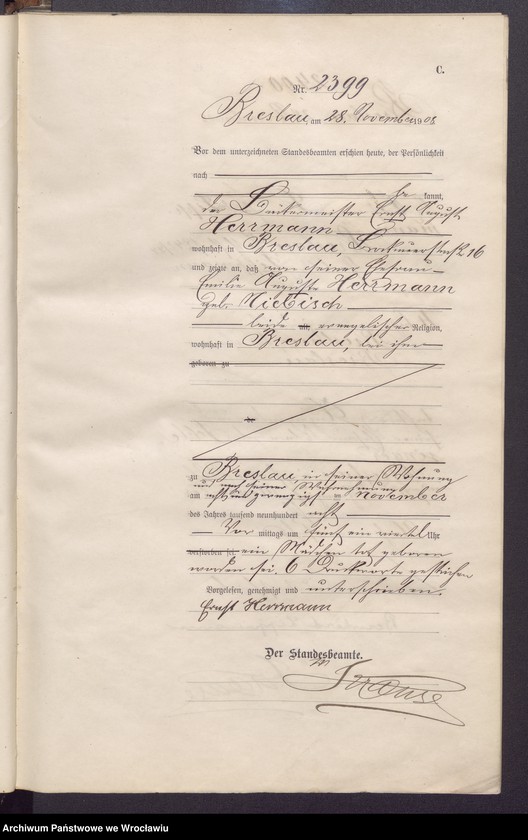 C.
Nr. 2399
Breslau, am 28. November 1908
Vor dem unterzeichneten Standesbeamten erschien heute, der Persönlichkeit
nach
kannt,
der Bäckermeister Ernst August
Herrmann
wohnhaft in Breslau, 16
und zeigte an, daß von seiner Ehefrau
Emilie Auguste Herrmann
geb. Niebisch
beide evangelischer Religion,
wohnhaft in Breslau, bei ihm
geboren zu
de
zu Breslau in seiner Wohnung
und nach seiner Wahrnehmung
am achtundzwanzigsten November
des Jahres tausend neunhundert acht
Vor mittags um fünf ein viertel Uhr
verstorben sei ein Mädchen tot geboren
worden sei. 6 Druckworte gestrichen
Vorgelesen, genehmigt und unterschrieben.
Ernst Herrmann
Der Standesbeamte.
Krause
Archiwum Państwowe we Wrocławiu